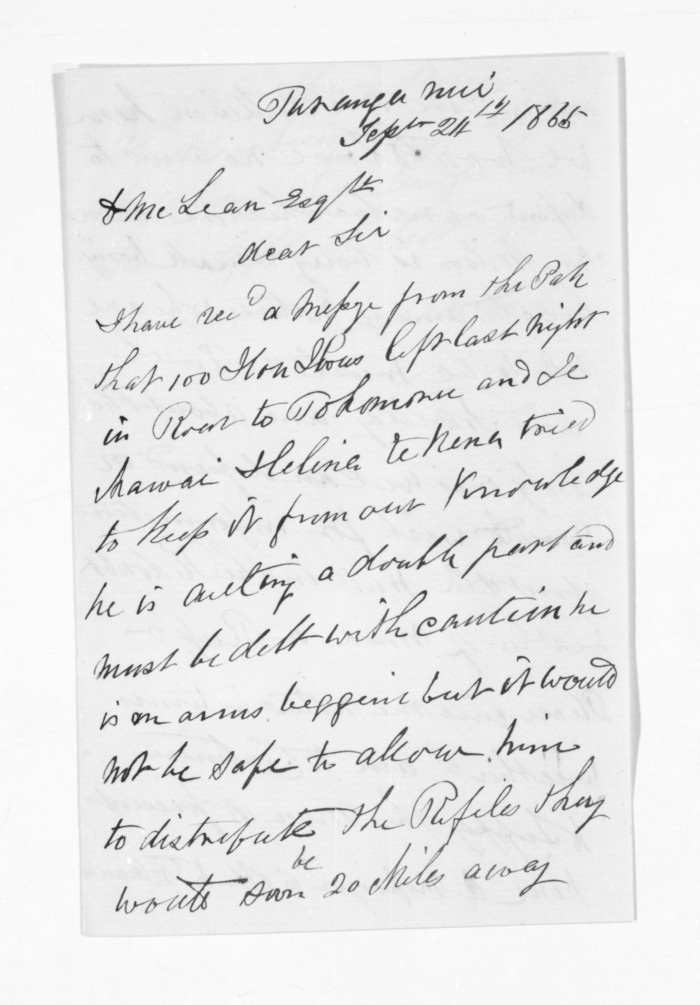 Turanga nui
Sept 24th 1865
D McLean Esqre
dear Sir
I have recd a Messge from the Pah
that 100 Hou Hous left last Night
in Rout to Tokomoru and Te
Mawai Helina te Kena tried
to Keep it from our Knowledge
he is acting a double part and
must be delt with caution he
is in arms beggin but it would
not be safe to allow him
to distribute the Rifeles they
would soon be 20 Miles away